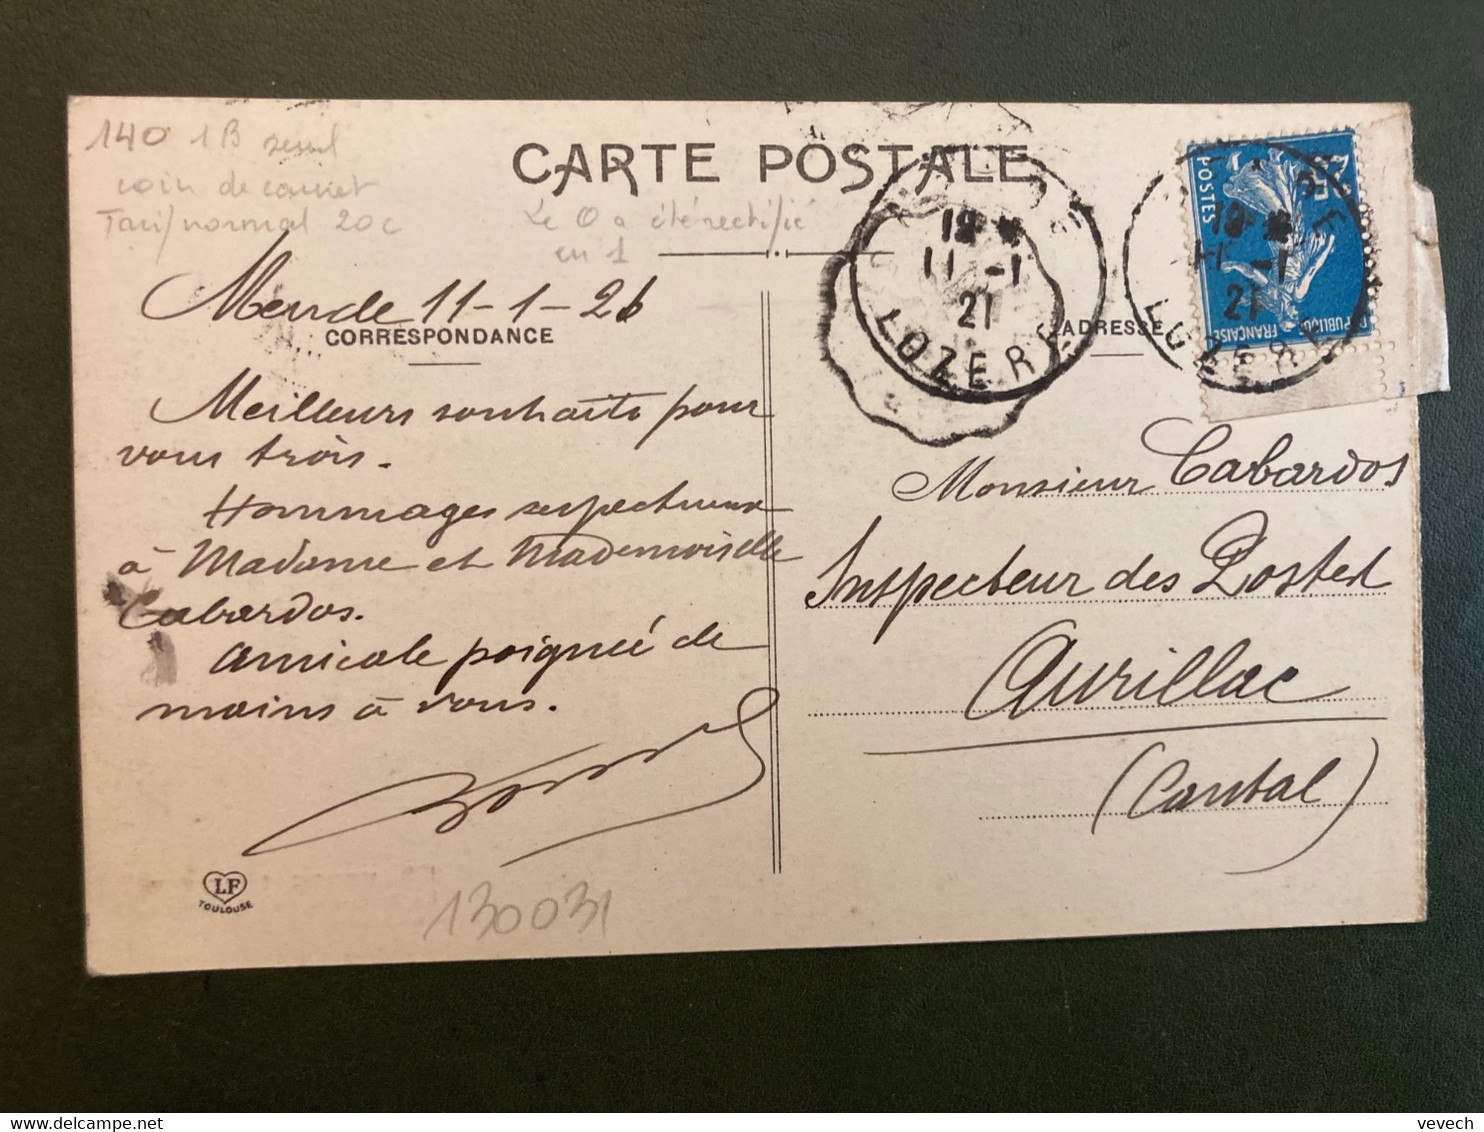 140 1B seul
coin de carnet
Tarif normal 20c
CARTE POSTALE
Le 0 a été rectifié
en 1
Mende 11-1-26
CORRESPONDANCE
Meilleurs souhaits pour
vous trois.
Hommages respectueux
à Madame et Mademoiselle
Cabardos.
Amicale poignée de
mains à vous.
LF
TOULOUSE
130031
19
11 -1
21
LOZERE
ADRESSE
19
11 -1
21
LOZERE
POSTES
25c
REPUBLIQUE
FRANÇAISE
Monsieur Cabardos
Inspecteur des Postes
Aurillac
(Cantal)
vevech
Delcampe.net